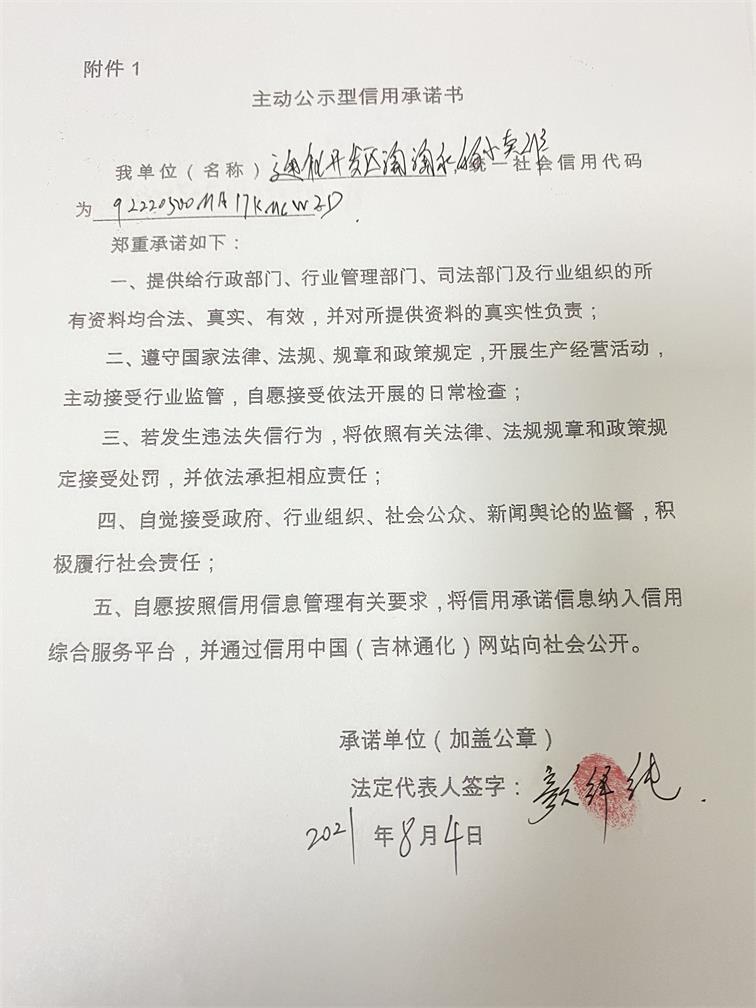 附件 1
主动公示型信用承诺书
我单位（名称）通化开发区淘淘 统一社会信用代码
为 92220500MA17KMCWZD .
郑重承诺如下：
一、提供给行政部门、行业管理部门、司法部门及行业组织的所
有资料均合法、真实、有效，并对所提供资料的真实性负责；
二、遵守国家法律、法规、规章和政策规定，开展生产经营活动，
主动接受行业监管，自愿接受依法开展的日常检查；
三、若发生违法失信行为，将依照有关法律、法规规章和政策规
定接受处罚，并依法承担相应责任；
四、自觉接受政府、行业组织、社会公众、新闻舆论的监督，积
极履行社会责任；
五、自愿按照信用信息管理有关要求，将信用承诺信息纳入信用
综合服务平台，并通过信用中国（吉林通化）网站向社会公开。
承诺单位（加盖公章）
法定代表人签字：
2021 年 8 月 4 日